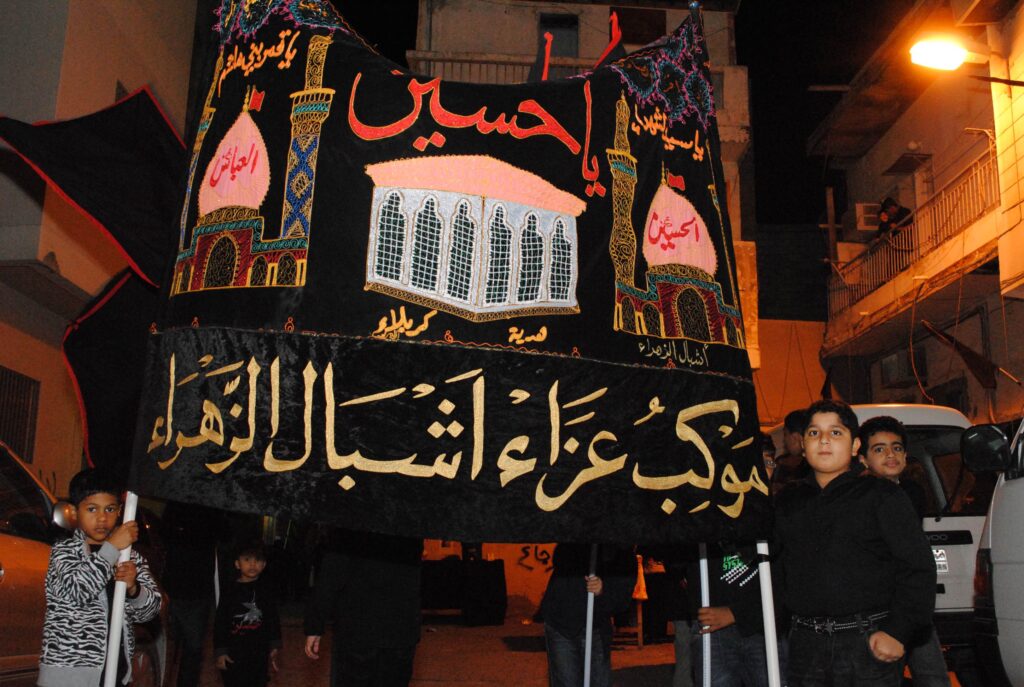 يا قمر بني هاشم
يا حسين
يا سيد الشهداء
العباس
الحسين
هدية
كربلاء
أشبال الزهراء
موكب عزاء أشبال الزهراء